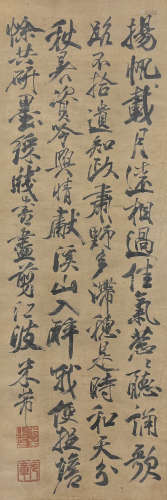 揚帆載月遠相過佳氣葱々聽誦歌
路不拾遺知政肅野多滯穗是時和天分
秋暑資吟興晴獻溪山入醉哦便捉蟾
蜍共研墨綵牋書盡剪江波米芾